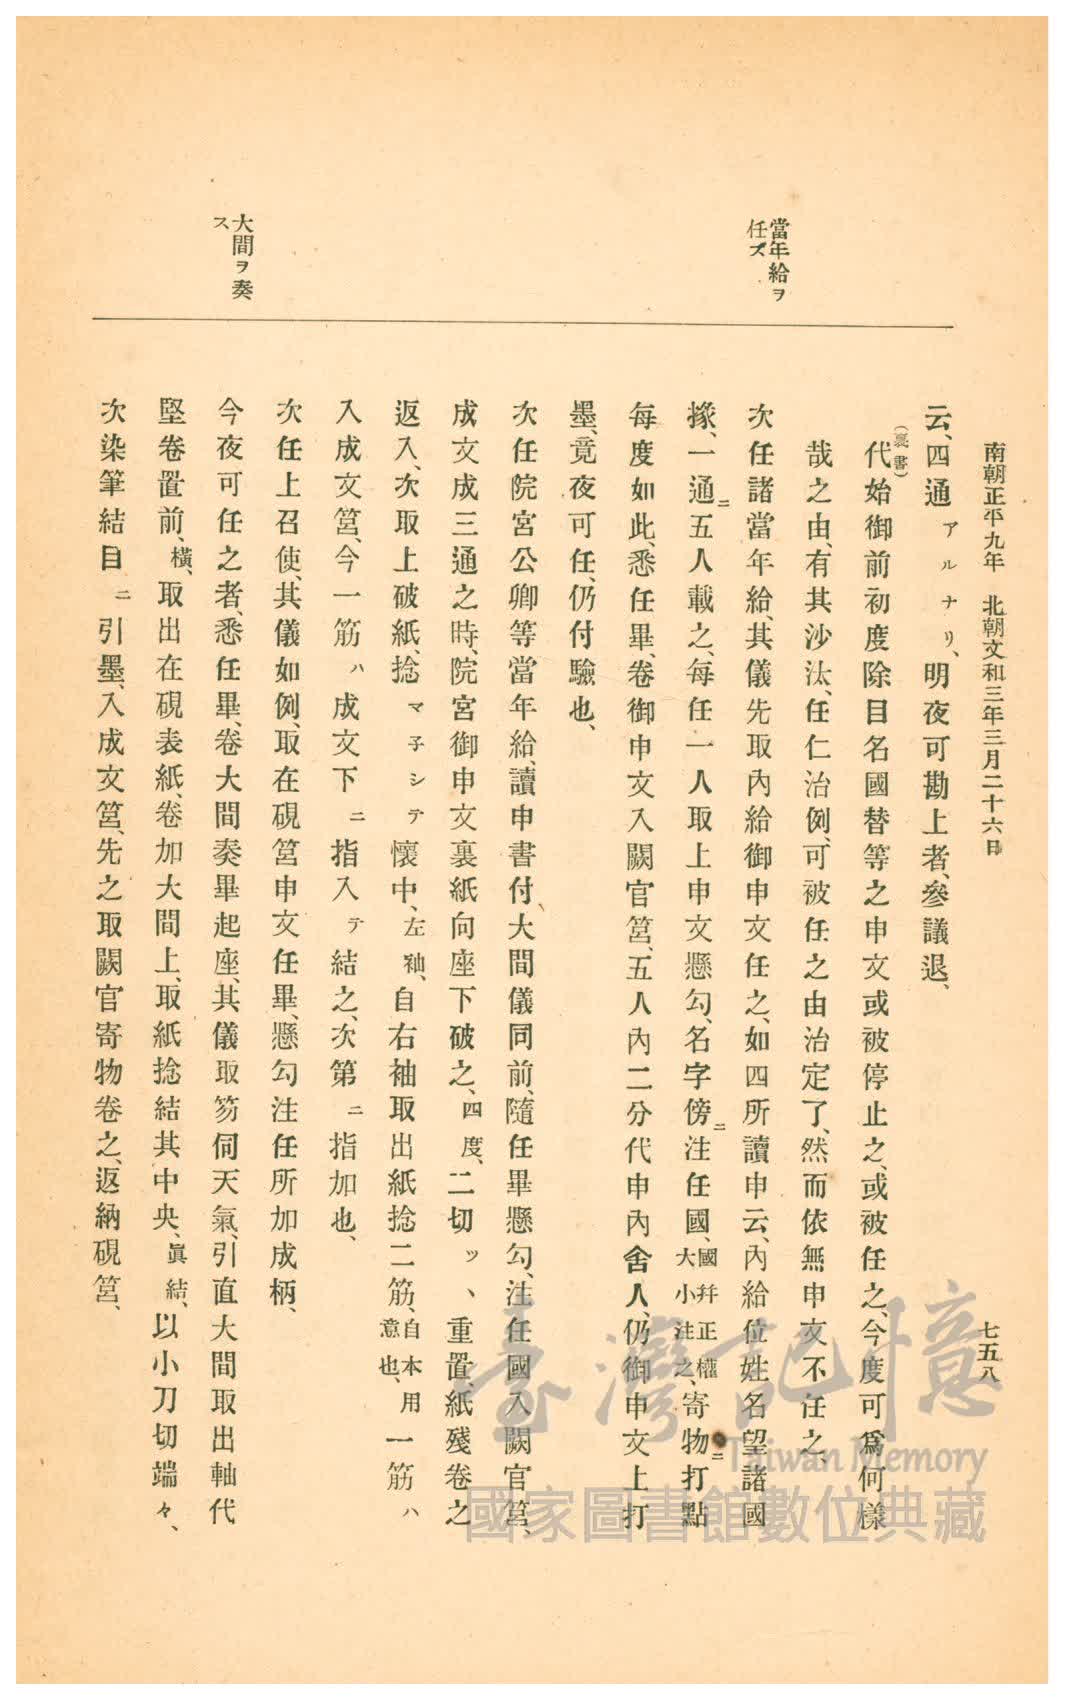 南朝正平九年　北朝文和三年三月二十六日
七五八
當年給ヲ
任ズ
大間ヲ奏
ス
云、四通アルナリ、明夜可勘上者、參議退、
（裏書）
代始御前初度除目名國替等之申文或被停止之、或被任之、今度可爲何樣
哉之由、有其沙汰、任仁治例、可被任之由治定了、然而依無申文不任之、
次任諸當年給、其儀先取內給御申文任之、如四所讀申云、內給位姓名望諸國
掾、一通ニ五人載之、每任一人取上申文懸勾、名字傍ニ注任國、國幷正權大小注之、寄物ニ打點
每度如此、悉任畢、卷御申文入闕官筥、五人內二分代申內舍人、仍御申文上打
墨、竟夜可任、仍付驗也、
次任院宮公卿等當年給、讀申書付大間儀同前、隨任畢懸勾、注任國入闕官筥、
成文成三通之時、院宮御申文裏紙向座下破之、四度、二切ッヽ重置、紙殘卷之
返入、次取上破紙、捻マ子シテ懷中、左袖、自右袖取出紙捻二筋、自本用意也、一筋ハ
入成文筥、今一筋ハ成文下ニ指入テ結之、次第ニ指加也、
次任上召使、其儀如例、取在硯筥申文任畢、懸勾注任所加成柄、
今夜可任之者、悉任畢、卷大間奏畢起座、其儀取笏伺天氣、引直大間取出軸代
堅卷置前、橫、取出在硯表紙、卷加大間上、取紙捻結其中央、眞結、以小刀切端々、
次染筆結目ニ引墨、入成文筥、先之取闕官寄物卷之、返納硯筥、
臺灣記憶
Taiwan Memory
國家圖書館數位典藏